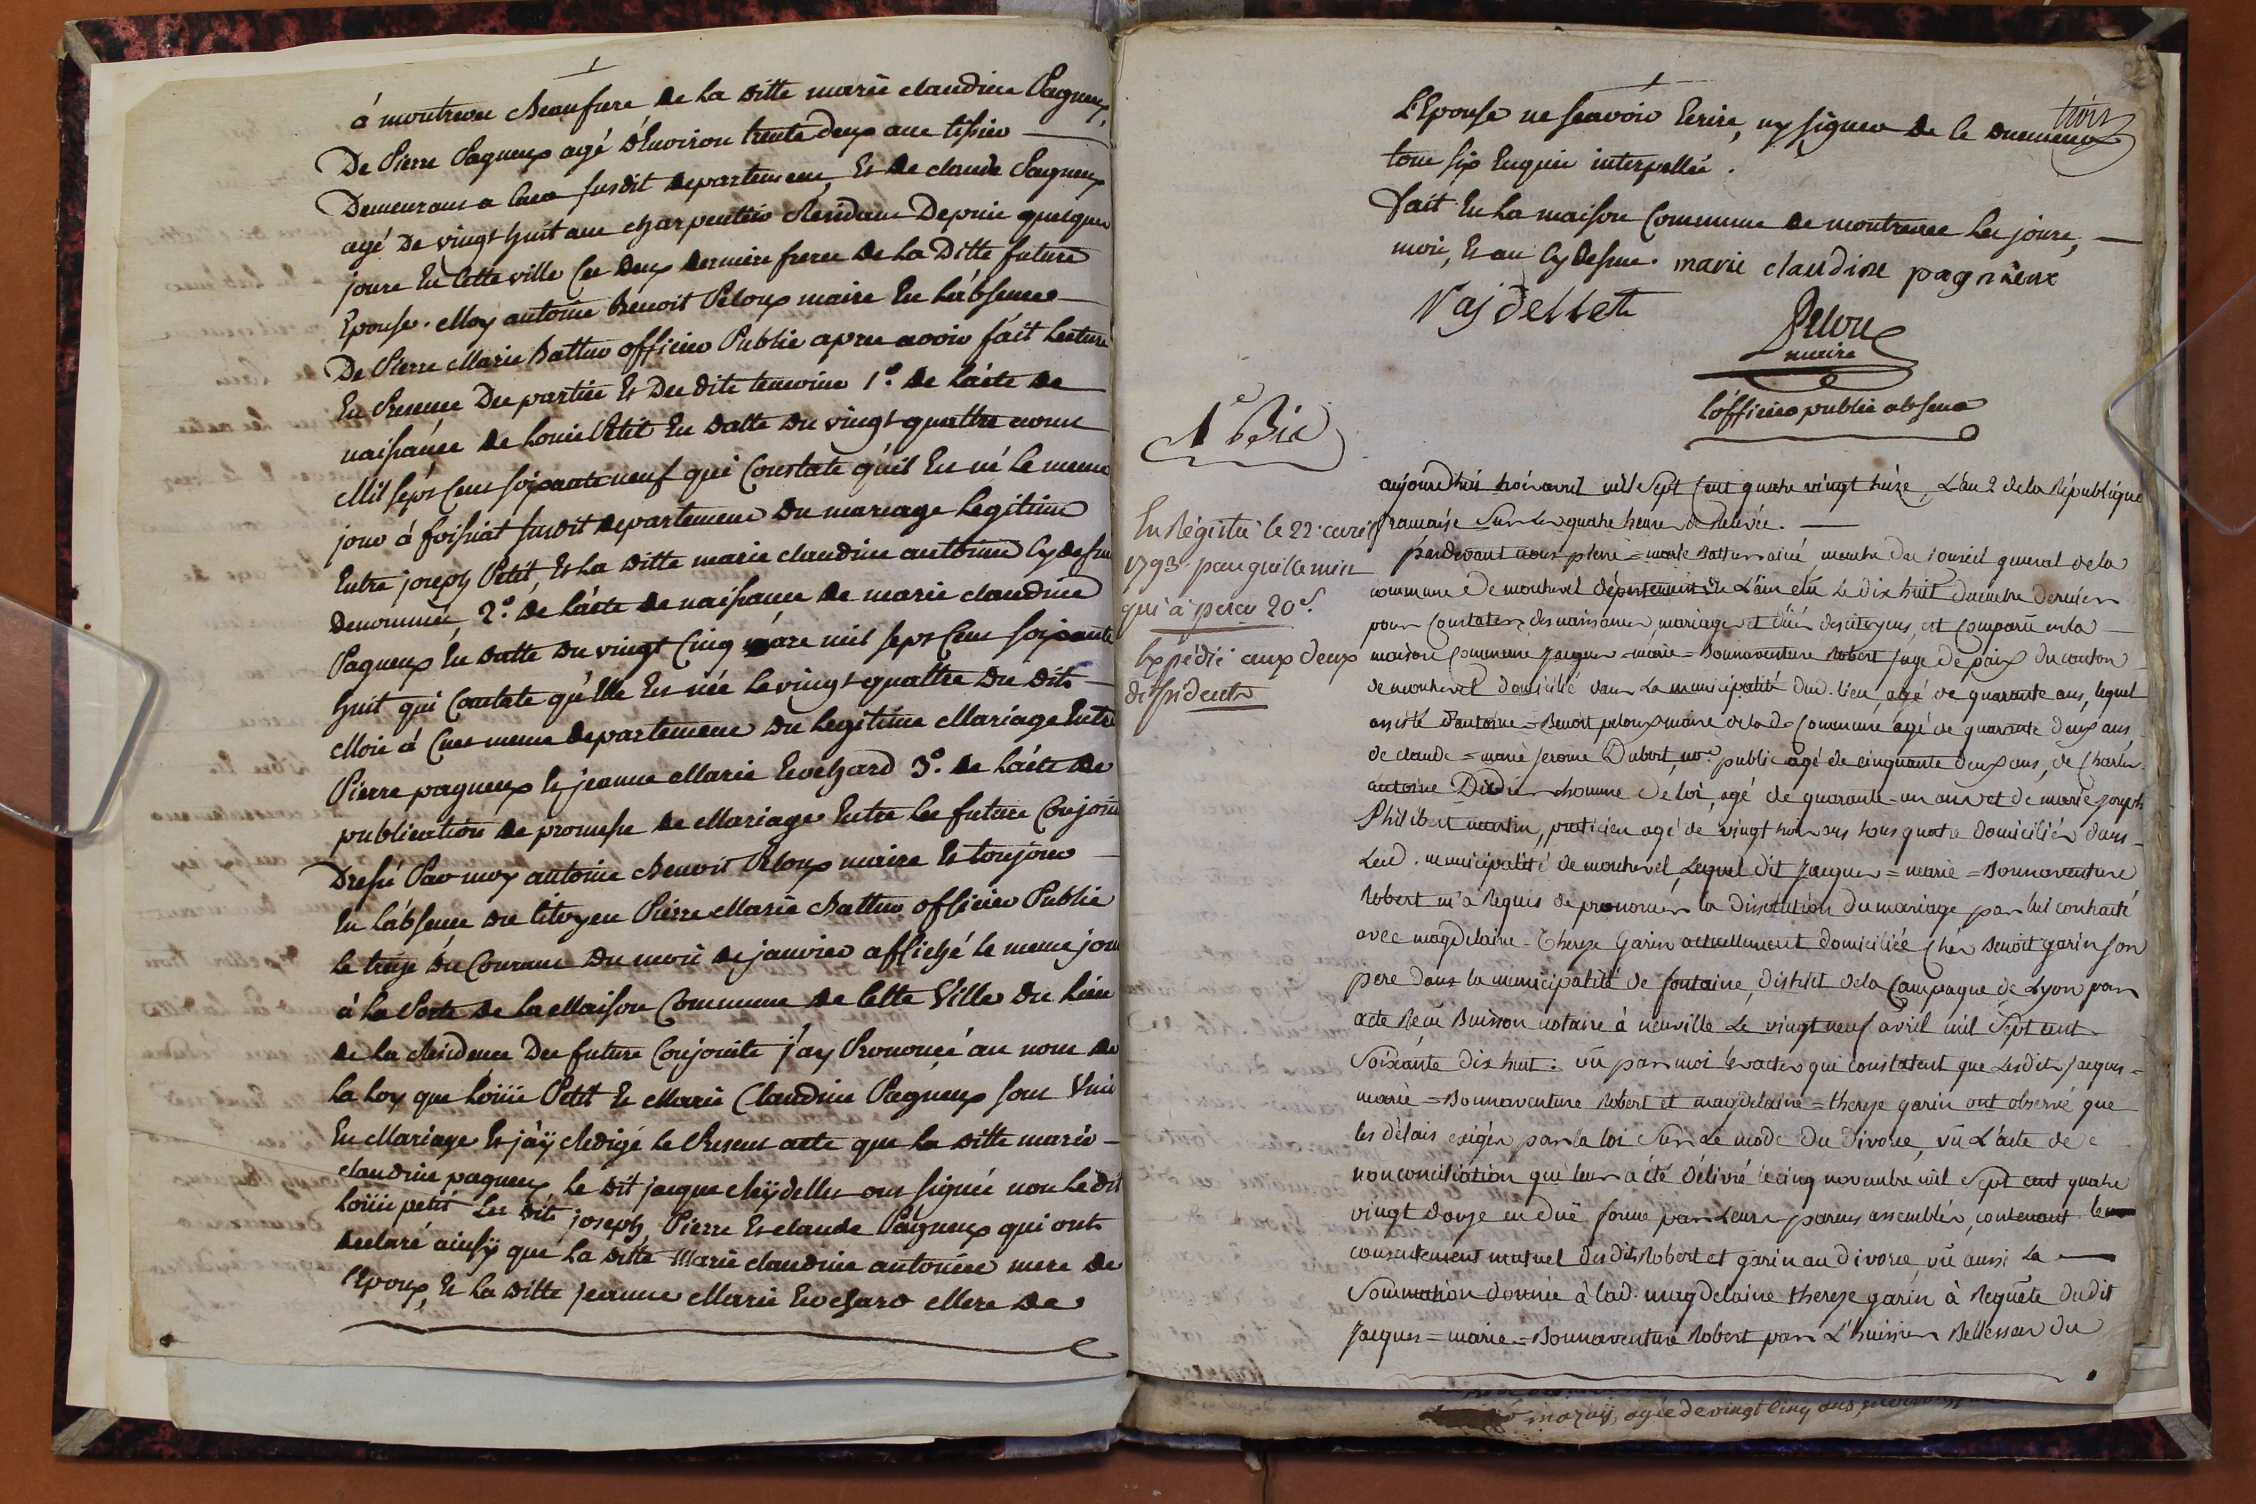 à montrevel Beaufrere de la ditte marie claudine Pagneux,
De Pierre Pagneux agé d'Environ trente deux ans tissier
Demeurans a susdit departement, Et de claude Pagneux
agé De vingt huit ans charpentier Residant Depuis quelques
jours En Cette ville Ces deux derniers freres de La Ditte future
Epouse. Moy antoine Benoit Peloux maire En L'absence
De Pierre Marie Battur officier Public apres avoir fait Lecture
En Presence Des parties Et Des dits temoins 1º. de L'acte de
naissance de Louis Petit En datte du vingt quattre aoust
Mil sept Cens soixante neuf qui Constate qu'il Est né Le meme
jour à foissiat susdit departement du mariage Legitime
Entre joseph Petit, Et La ditte marie claudine antoinne Cy dessus
denommée, 2º. de L'acte de naissance de marie claudine
Pagneux En datte du vingt Cinq mars mil sept Cens soixante
huit qui Constate qu'Elle Est née Le vingt quattre du dit
Mois à meme departement du Legitime Mariage Entre
Pierre pagneux Et jeanne Marie Evechard 3º. de L'acte de
publication de promesse de Mariage Entre Les futurs Conjoints
Dressé Par moy antoine Benoit Peloux maire Et toujours
En L'absence du Citoyen Pierre Marie Battur officier Public
Le treize du Courant du mois de janvier affiché Le meme jour
à La Porte de La Maison Commune de Cette Ville du Lieu
de La Residence Des futurs Conjoints j'ay Prononcé au nom de
La Loy que Loüis Petit Et Marie Claudine Pagneux sont Unis
En Mariage Et j'aÿ Redigé Le Present acte que La ditte marie
claudine pagneux Le dit jacque ont signés non Le dit
Loüis petit Les dits joseph, Pierre Et claude Pagneux qui ont
declaré ainsÿ que La ditte Marie claudine antoinne mere de
L'Epoux, Et La ditte jeanne Marie Evechard Mere de
trois
L'Epouse ne sçavoir Ecrire, ny signer de ce duement
tous six Enquis interpellés.
Fait En La maison Commune de montrevel Les jours,
mois, Et an Cy dessus. marie claudine pagnieux
Peloux
maire
L'officier public absent
1e Bis
En Régistré le 22 avril
1793 par guillemin
qui à perçu 20s.
Expédié aux deux
dissidents
aujourd'hui trois avril mil Sept Cent quatre vingt treize, L'an 2 de la République
francaise Sur Les quatre heures de Relevée.
Pardevant nous pierre = marie Battur ainé, membre du conseil general de la
commune De montrevel département de L'ain elû Le dix huit decembre dernier
pour Constater des naissances, mariages et décès des citoyens, est Comparû en la
maison Commune Jacques = marie = Bonnaventure Robert juge de paix du canton
de montrevel domicilié dans La municipalité dud. lieu, agé de quarante ans, lequel
assisté d'antoine = Benoit peloux maire de la de. Commune agé de quarante deux ans,
de claude = marie Jerome Dubert, nore. public agé de cinquante deux ans, de Charles
antoine Didier homme De loi, agé de quarante-un ans et de marie Joseph
Philibert martin, praticien agé de vingt trois ans tous quatre domiciliés dans
Lad. municipalité de montrevel, Lequel dit Jacques = marie = Bonnaventure
Robert m'a Requis de prononcer la dissolution du mariage par lui contracté
avec magdelaine-Thereze Garin actuellement domiciliée Chés Benoit garin son
pere dans la municipalité de fontaine, district de la Campagne de Lyon par
acte Récu Buisson notaire à neuville Le vingt neuf avril mil Sept cent
Soixante dix huit: vû par moi les actes qui constatent que Lesdits jacques =
marie = Bonnaventure Robert et magdelaine = thereze garin ont observé que
les délais exigés par la loi Sur Le mode du Divorce, vû L'acte de
nonconciliation qui leur a été délivré le cinq novembre mil Sept cent quatre
vingt douze en duë forme par Leurs parens assemblés, contenant le
consentement mutuel desdits Robert et garin au divorce, vû aussi La
Sommation donnée à lad. magdelaine thereze garin à Requête dudit
Jacques = marie = Bonnaventure Robert par L'huissier du
agée de vingt cinq ans